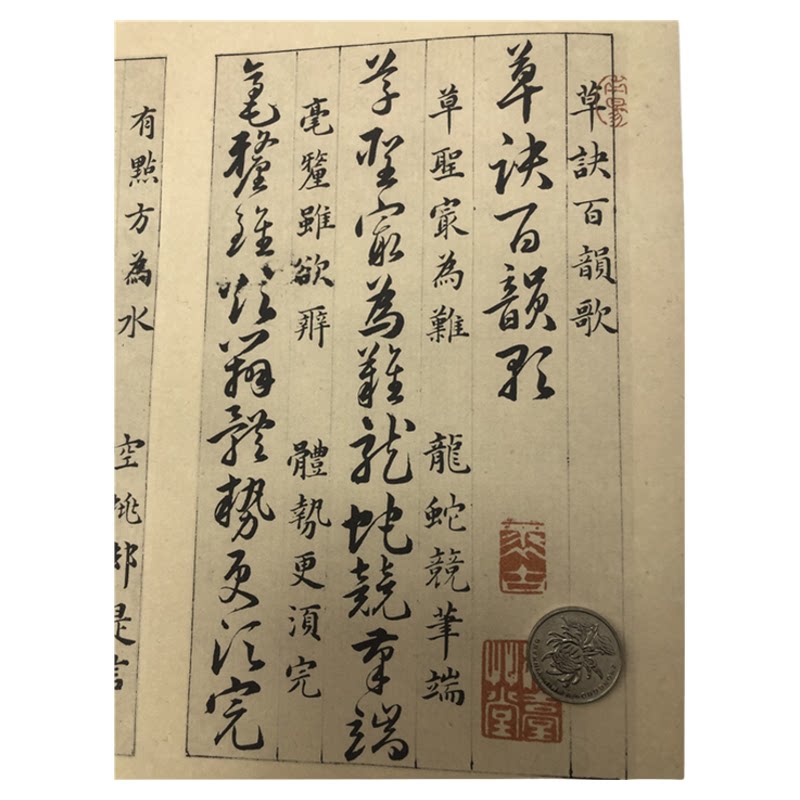 草訣百韻歌
草訣百韻歌
草聖㝡為難 龍蛇競筆端
草聖㝡為難龍蛇競筆端
毫釐雖欲辨 體勢更湏完
毫釐雖欲辨體勢更湏完
有點方為水 空挑却是言